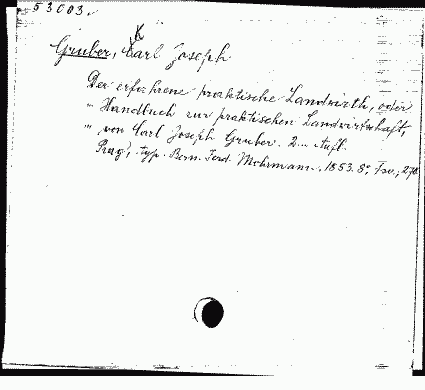 53003.
K
Gruber, Carl Joseph
Der erfahrene praktische Landwirth, oder
" Handbuch zur praktischen Landwirtschaft,
" von Carl Joseph Gruber. 2... Aufl.
Prag, typ. Bern. Ferd. Mohrmann. 1853. 8°,